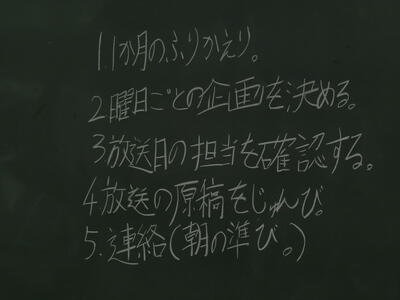 1.1か月のふりかえり。
2.曜日ごとの企画を決める。
3.放送日の担当を確認する。
4.放送の原稿をじゅんび。
5.連絡(朝の準び。)